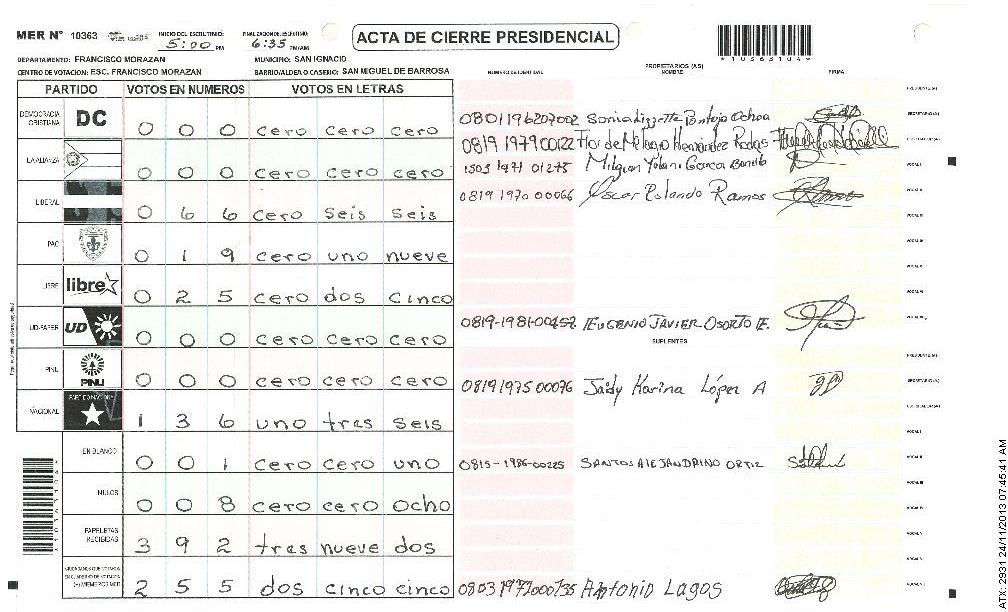 MER Nº 10363 INICIO DEL ESCRUTINIO: 5:00 PM FINALIZACION DE ESCRUTINIO: 6:35 PM/AM
ACTA DE CIERRE PRESIDENCIAL
*10363104*
DEPARTAMENTO: FRANCISCO MORAZAN MUNICIPIO: SAN IGNACIO
CENTRO DE VOTACION: ESC. FRANCISCO MORAZAN BARRIO/ALDEA O CASERIO: SAN MIGUEL DE BARROSA
NUMERO DE IDENTIDAD PROPIETARIOS (AS) NOMBRE FIRMA
PARTIDO VOTOS EN NUMEROS VOTOS EN LETRAS
DEMOCRACIA CRISTIANA DC 0 0 0 cero cero cero
LA ALIANZA 0 0 0 cero cero cero
LIBERAL 0 6 6 cero seis seis
PAC 0 1 9 cero uno nueve
LIBRE libre 0 2 5 cero dos cinco
UD-FAPER UD 0 0 0 cero cero cero
PINU PINU 0 0 0 cero cero cero
NACIONAL PARTIDO NACIONAL 1 3 6 uno tres seis
EN BLANCO 0 0 1 cero cero uno
NULOS 0 0 8 cero cero ocho
PAPELETAS RECIBIDAS 3 9 2 tres nueve dos
CIUDADANOS QUE VOTARON EN CUADERNO DE VOTACION (+) MIEMBROS MER 2 5 5 dos cinco cinco
0801196207002 Sonia Lizzette Pantoja Ochoa
0819 1979 00122 Flor de Milagro Hernández Rodas
1503 1971 01275 Milgian Yolani Garcia Bonilla
0819 1970 00066 Oscar Rolando Ramos
0819-1981-00452 EUGENIO JAVIER OSORTO E.
SUPLENTES
0819 1975 00076 Jaidy Karina López A
0815-1986-00225 SANTOS ALEJANDRINO ORTIZ
0803197200735 Antonio Lagos
PRESIDENTE (A)
SECRETARIO (A)
ESCRUTADOR (A)
VOCAL I
VOCAL II
VOCAL III
VOCAL IV
VOCAL V
VOCAL VI
PRESIDENTE (A)
SECRETARIO (A)
ESCRUTADOR (A)
VOCAL I
VOCAL II
VOCAL III
VOCAL IV
VOCAL V
VOCAL VI
ATX: 2931 24/11/2013 07:45:41 AM